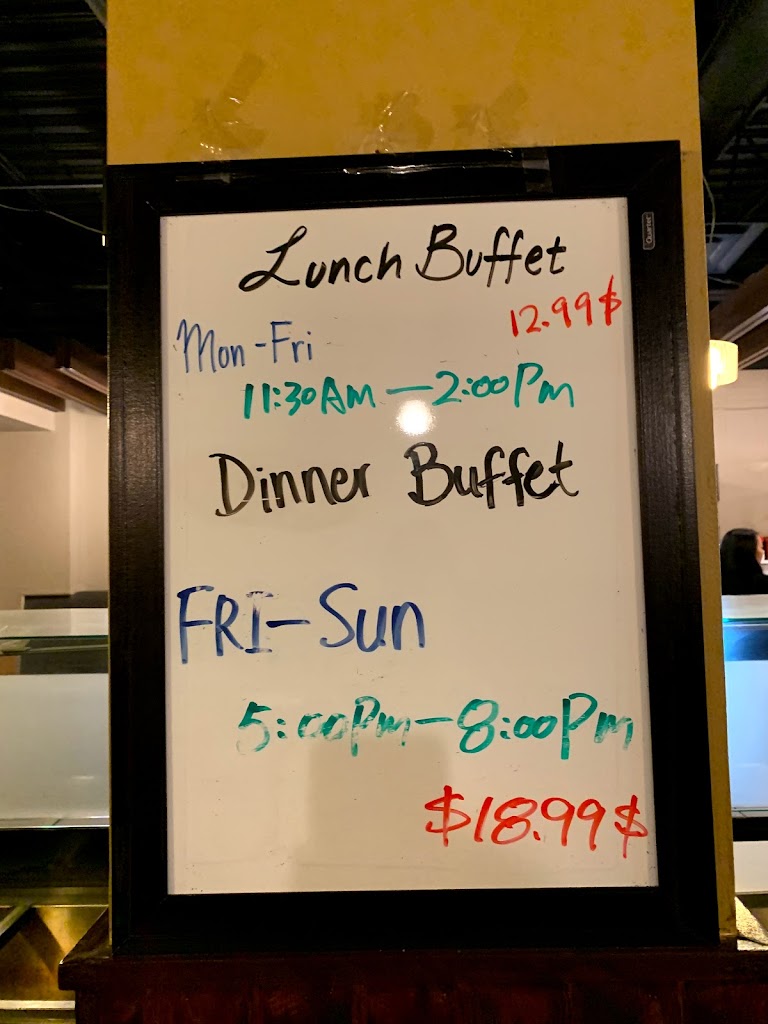 Lunch Buffet
12.99$
Mon-Fri
11:30AM — 2:00Pm
Dinner Buffet
FRI-Sun
5:00Pm-8:00Pm
$18.99$
Quartet